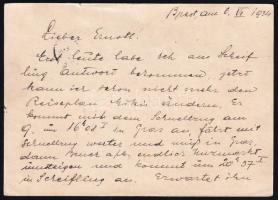 Brest am 6. VI 1934
Lieber Ernstl!
Erst heute habe ich aus Scheif
ling Antwort bekommen, jetzt
kann ich schon nicht mehr den
Reiseplan ändern. Er
kommt mit dem Schnellzug am
9. in 16h08 I in Graz an, fährt mit
Schnellzug weiter und muß in Graz,
dann Bruck a/M, endlich Unzmarkt
umsteigen und kommt um 20h 57 I
in Scheifling an. Erwartet ihn